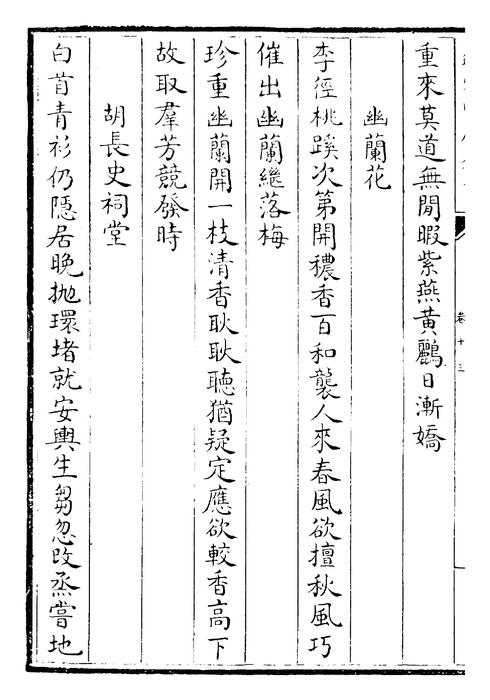 卷十三
重來莫道無閒暇紫燕黃鸝日漸嬌
幽蘭花
李徑桃蹊次第開穠香百和襲人來春風欲擅秋風巧
催出幽蘭繼落梅
珍重幽蘭開一枝清香耿耿聽猶疑定應欲較香高下
故取羣芳競發時
胡長史祠堂
白首青衫仍隠居晩抛環堵就安輿生芻忽改烝嘗地